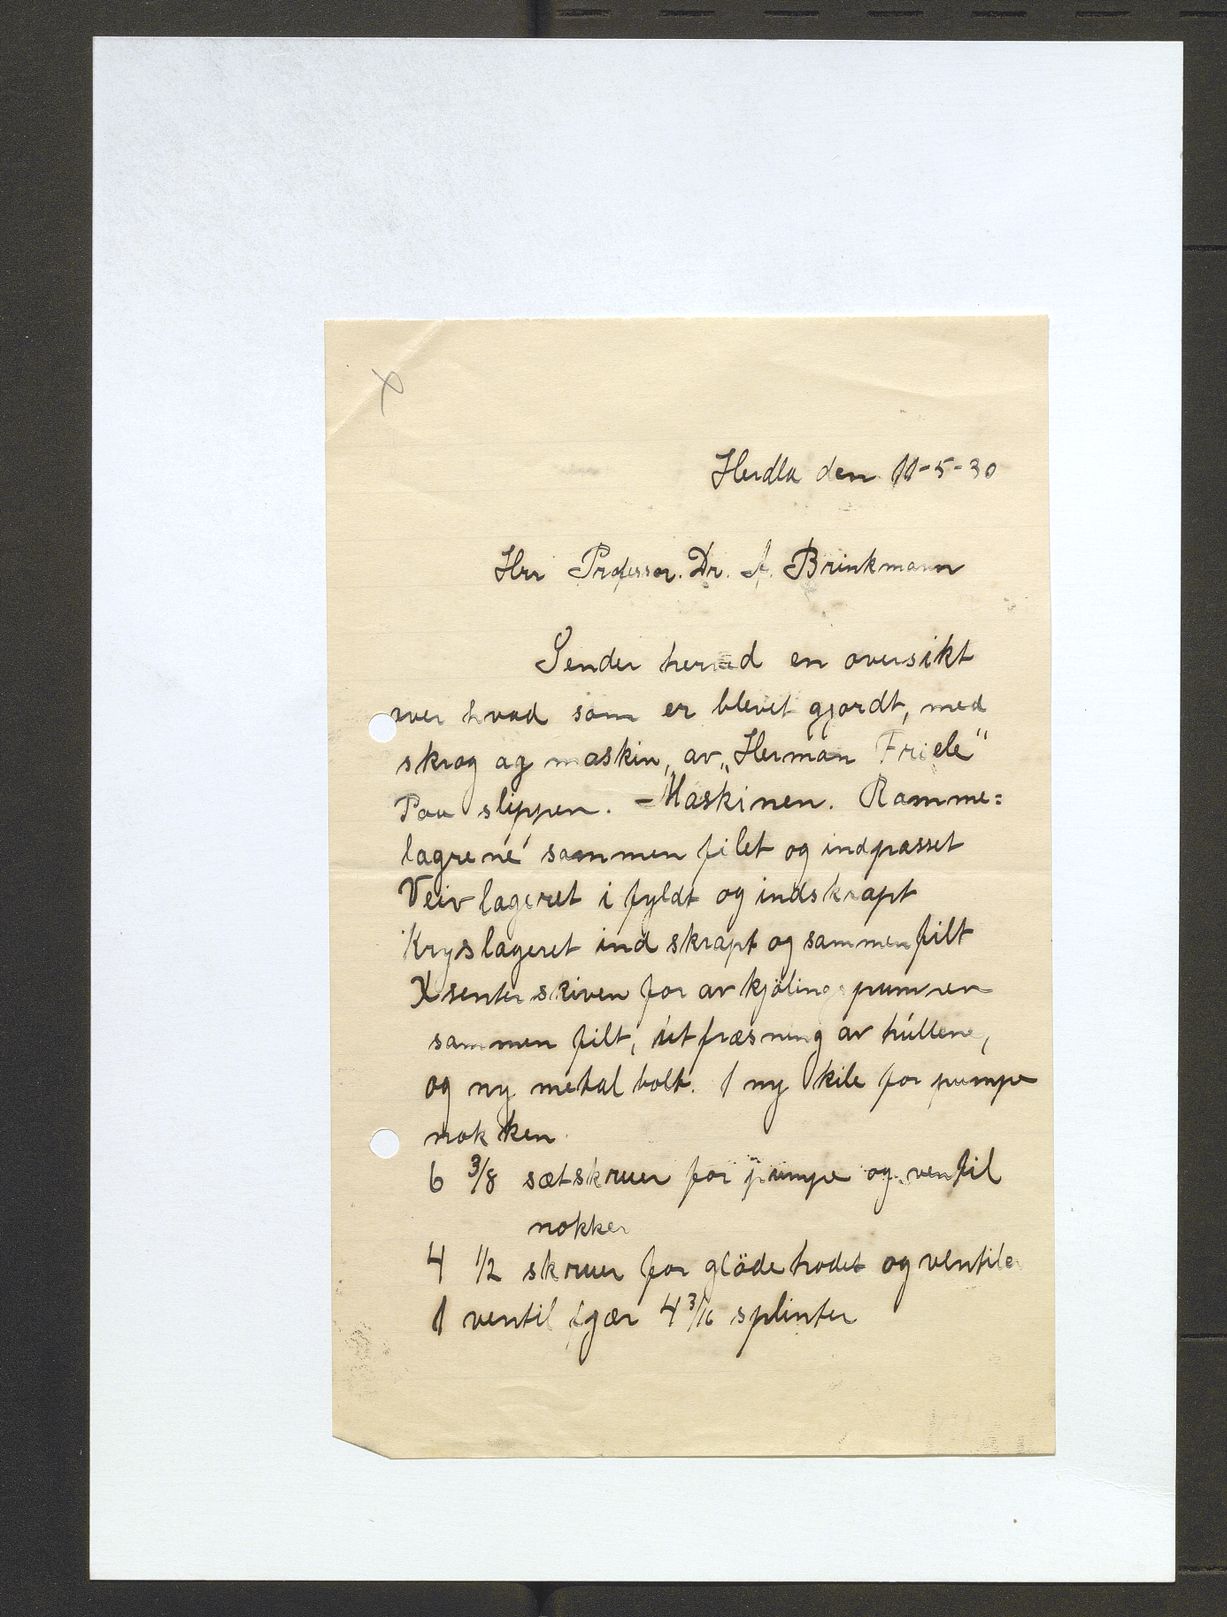 Herdla den 11-5-30
Herr Professor. Dr. A. Brinkmann
Sender herved en oversikt
over hvad som er blevet gjordt, med
skrog og maskin, av „Herman Friele"
Paa slippen. - Maskinen. Ramme=
lagrene sammen filet og indpasset
Veivlageret i fyldt og indskrapt
Kryslageret ind skrapt og sammenfilt
Xsenter skiven for avkjølings pumpen
sammen filt, utfræsning av hullene,
og ny metal bolt. 1 ny kile for pumpe
nokken
6 3/8 sætskruer for pumpe og ventil
nokker
4 1/2 skruer for glödehodet og ventiler
1 ventil fjær 4 3/16 splinter